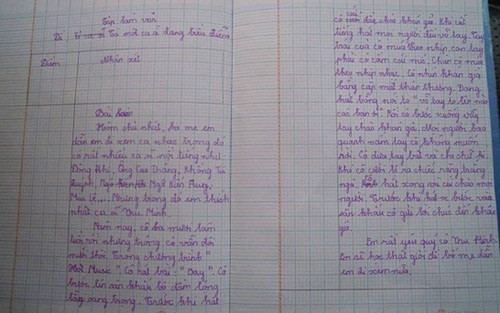 Tập làm văn
Đề Tả một ca sĩ đang biểu diễn
Điểm Nhận xét
Bài làm
Hôm chủ nhật, ba mẹ em
dẫn em đi xem ca nhạc trong đó
có rất nhiều ca sĩ nổi tiếng như:
Đông Nhi, Ông Cao Thắng, Khổng Tú
Quỳnh, Ngô Kiến Huy,
Nhưng trong đó em thích
nhất ca sĩ Thu Minh.
Năm nay, cô ba mươi lăm
tuổi rồi nhưng trông cô vẫn đôi
mươi thôi. Trong chương trình "
Hot Music". Cô hát bài: "Bay". Cô
bước lên sân khấu bộ đầm lóng
lánh sang trọng. Trước khi hát
cô chào khán giả. Khi cất
tiếng hát mọi người đều vỗ tay. Tay
trái của cô múa theo nhịp, còn tay
phải cô cầm cái mic. Chân cô múa
theo nhịp nhạc. Cô nhìn khán giả
bằng cặp mắt thân thương. Đang
hát bỗng nói to "vỗ tay to lên nào
các bạn ơi". Rồi cô bước xuống bắt
tay chào khán giả. Mọi người bao
quanh nắm tay cô không muốn
rời. Cô đưa tay bắt và cho chữ kí.
Khi cô cười lộ ra chiếc răng trắng
ngà. hát xong cô cúi chào mọi
người. Trước khi bước vào
sân khấu cô gửi lời chúc đến khán
giả.
Em rất yêu quý cô Thu Minh.
Em sẽ học thật giỏi để bố mẹ dẫn
em đi xem nữa.